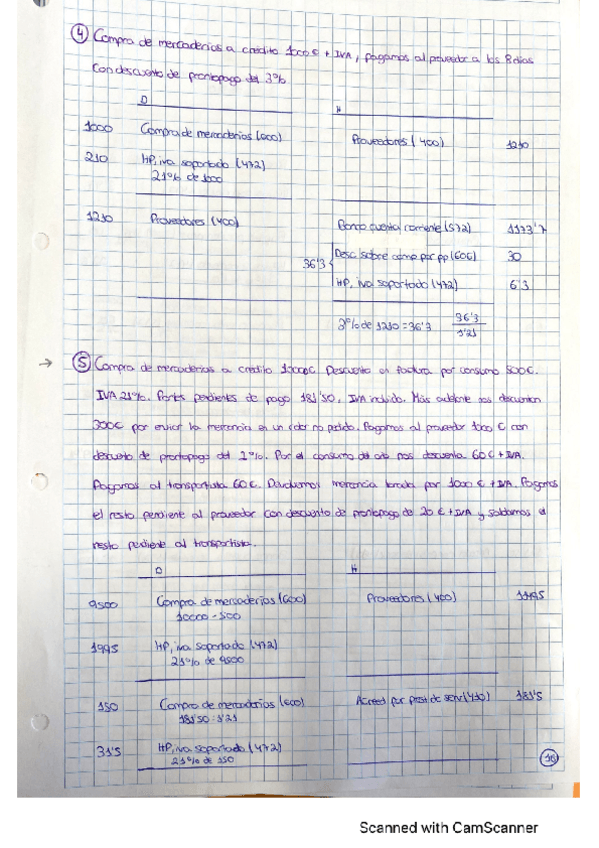 ④ Compra de mercaderías a crédito 1000 € + IVA, pagamos al proveedor a los 8 días
Con descuento de prontopago del 3%
D H
1000 Compra de mercaderías (600) Proveedores (400) 1210
210 HP, iva soportado (472)
21% de 1000
1210 Proveedores (400) Banco cuenta corriente (572) 1173'7
36'3 Desc. sobre comp por pp (606) 30
HP, iva soportado (472) 6'3
3% de 1210 = 36'3 36'3
1'21
→ ⑤ Compra de mercaderías a crédito 10000€. Descuento en factura por consumo 500€.
IVA 21%. Portes pendientes de pago 181'50, IVA incluido. Más adelante nos descuentan
300€ por enviar la mercancía en un color no pedido. Pagamos al proveedor 1000 € con
descuento de prontopago del 2%. Por el consumo del año nos descuenta 60€ + IVA.
Pagamos al transportista 60€. Devolvemos mercancía por 1000 € + IVA. Pagamos
el resto pendiente al proveedor con descuento de prontopago de 20 € + IVA y saldamos el
resto pendiente al transportista.
D H
9500 Compra de mercaderías (600) Proveedores (400) 11495
10000 - 500
1995 HP, iva soportado (472)
21% de 9500
150 Compra de mercaderías (600) Acreed por prest de serv (410) 181'5
181'50 : 1'21
31'5 HP, iva soportado (472)
21% de 150
16
Scanned with CamScanner